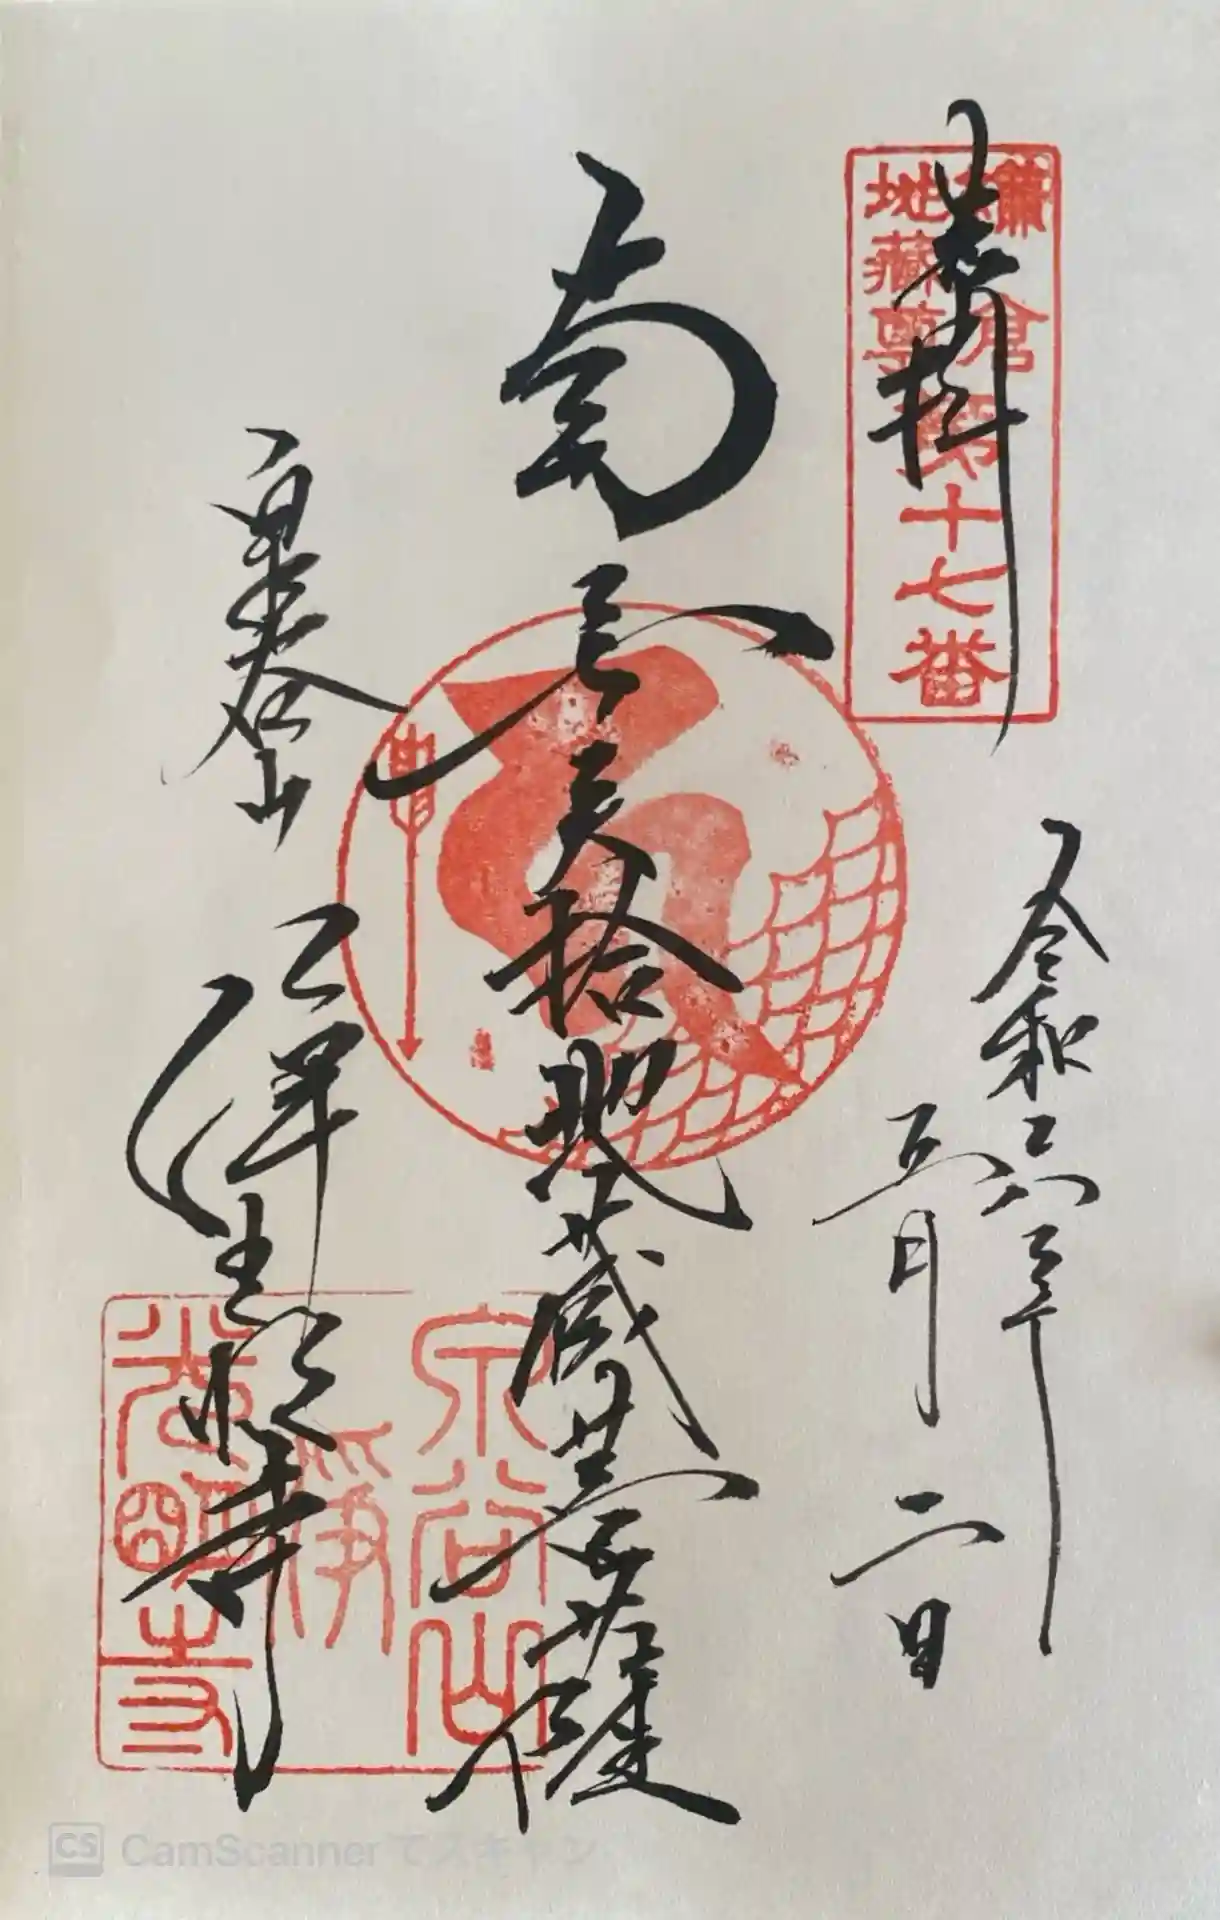 奉拝
鎌倉
地藏尊
第十七番
令和六年
五月二日
南無矢拾地蔵菩薩
泉谷山
浄光明寺
泉谷山
淨
光明寺
CS CamScannerでスキャン